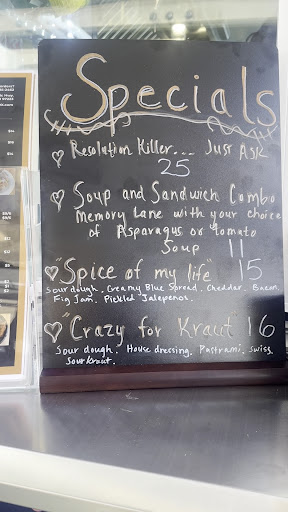 Specials
♡ Resolution Killer... Just Ask
25
♡ Soup and Sandwich Combo
Memory Lane with your choice
of Asparagus or tomato
Soup 11
♡ "Spice of my life" 15
Sourdough. Creamy Blue Spread. Cheddar. Bacon.
Fig Jam. Pickled Jalepenos.
♡ "Crazy for Kraut 16
Sour dough. House dressing. Pastrami. Swiss
Sour Kraut.